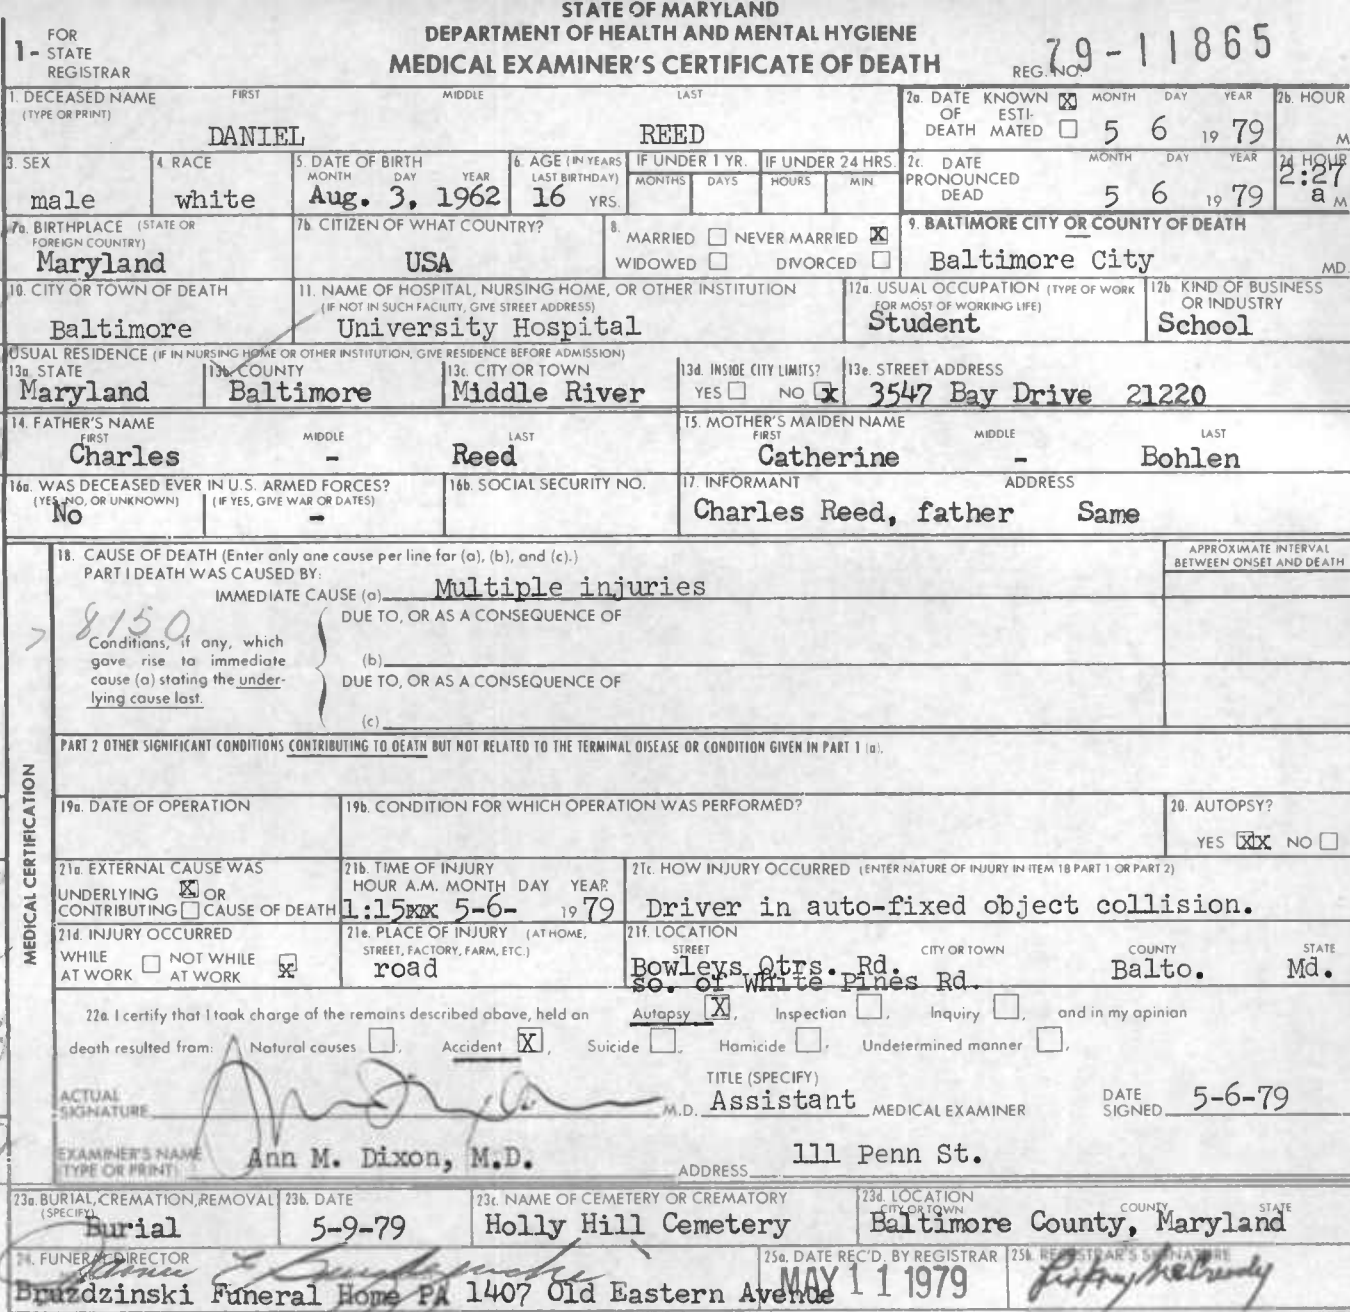 STATE OF MARYLAND
DEPARTMENT OF HEALTH AND MENTAL HYGIENE
MEDICAL EXAMINER'S CERTIFICATE OF DEATH
1- FOR STATE REGISTRAR
REG. NO. 79-11865
1. DECEASED NAME (TYPE OR PRINT) FIRST MIDDLE LAST
DANIEL REED
2a. DATE OF DEATH KNOWN X ESTIMATED MONTH DAY YEAR
5 6 1979
2b. HOUR
M
3. SEX
male
4. RACE
white
5. DATE OF BIRTH MONTH DAY YEAR
Aug. 3, 1962
6. AGE (IN YEARS LAST BIRTHDAY)
16 YRS.
IF UNDER 1 YR. MONTHS DAYS
IF UNDER 24 HRS. HOURS MIN.
2c. DATE PRONOUNCED DEAD MONTH DAY YEAR
5 6 1979
2d HOUR
2:27 a M
7a. BIRTHPLACE (STATE OR FOREIGN COUNTRY)
Maryland
7b. CITIZEN OF WHAT COUNTRY?
USA
8. MARRIED NEVER MARRIED X
WIDOWED DIVORCED
9. BALTIMORE CITY OR COUNTY OF DEATH
Baltimore City MD.
10. CITY OR TOWN OF DEATH
Baltimore
11. NAME OF HOSPITAL, NURSING HOME, OR OTHER INSTITUTION
(IF NOT IN SUCH FACILITY, GIVE STREET ADDRESS)
University Hospital
12a. USUAL OCCUPATION (TYPE OF WORK FOR MOST OF WORKING LIFE)
Student
12b. KIND OF BUSINESS OR INDUSTRY
School
USUAL RESIDENCE (IF IN NURSING HOME OR OTHER INSTITUTION, GIVE RESIDENCE BEFORE ADMISSION)
13a. STATE
Maryland
13b. COUNTY
Baltimore
13c. CITY OR TOWN
Middle River
13d. INSIDE CITY LIMITS?
YES NO x
13e. STREET ADDRESS
3547 Bay Drive 21220
14. FATHER'S NAME FIRST MIDDLE LAST
Charles - Reed
15. MOTHER'S MAIDEN NAME FIRST MIDDLE LAST
Catherine - Bohlen
16a. WAS DECEASED EVER IN U.S. ARMED FORCES?
(YES, NO, OR UNKNOWN) (IF YES, GIVE WAR OR DATES)
No -
16b. SOCIAL SECURITY NO.
17. INFORMANT ADDRESS
Charles Reed, father Same
MEDICAL CERTIFICATION
18. CAUSE OF DEATH (Enter only one cause per line for (a), (b), and (c).)
PART I DEATH WAS CAUSED BY:
IMMEDIATE CAUSE (a) Multiple injuries
APPROXIMATE INTERVAL
BETWEEN ONSET AND DEATH
8150
Conditions, if any, which
gave rise to immediate
cause (a) stating the under-
lying cause last.
DUE TO, OR AS A CONSEQUENCE OF
(b)
DUE TO, OR AS A CONSEQUENCE OF
(c)
PART 2 OTHER SIGNIFICANT CONDITIONS CONTRIBUTING TO DEATH BUT NOT RELATED TO THE TERMINAL DISEASE OR CONDITION GIVEN IN PART 1 (a).
19a. DATE OF OPERATION
19b. CONDITION FOR WHICH OPERATION WAS PERFORMED?
20. AUTOPSY?
YES XX NO
21a. EXTERNAL CAUSE WAS
UNDERLYING X OR
CONTRIBUTING CAUSE OF DEATH
21b. TIME OF INJURY
HOUR A.M. MONTH DAY YEAR
1:15 5-6- 1979
21c. HOW INJURY OCCURRED (ENTER NATURE OF INJURY IN ITEM 18 PART 1 OR PART 2)
Driver in auto-fixed object collision.
21d. INJURY OCCURRED
WHILE AT WORK NOT WHILE AT WORK X
21e. PLACE OF INJURY (AT HOME, STREET, FACTORY, FARM, ETC.)
road
21f. LOCATION
STREET CITY OR TOWN COUNTY STATE
Bowleys Qtrs. Rd. Balto. Md.
so. of White Pines Rd.
22a. I certify that I took charge of the remains described above, held an Autopsy X, Inspection , Inquiry , and in my opinion
death resulted from: Natural causes , Accident X, Suicide , Homicide , Undetermined manner ,
ACTUAL SIGNATURE M.D.
TITLE (SPECIFY)
Assistant MEDICAL EXAMINER
DATE SIGNED 5-6-79
EXAMINER'S NAME (TYPE OR PRINT) Ann M. Dixon, M.D.
ADDRESS 111 Penn St.
23a. BURIAL, CREMATION, REMOVAL (SPECIFY)
Burial
23b. DATE
5-9-79
23c. NAME OF CEMETERY OR CREMATORY
Holly Hill Cemetery
23d. LOCATION CITY OR TOWN COUNTY STATE
Baltimore County, Maryland
24. FUNERAL DIRECTOR
Bruzdzinski Funeral Home PA 1407 Old Eastern Avenue
25a. DATE REC'D. BY REGISTRAR
MAY 11 1979
25b. REGISTRAR'S SIGNATURE